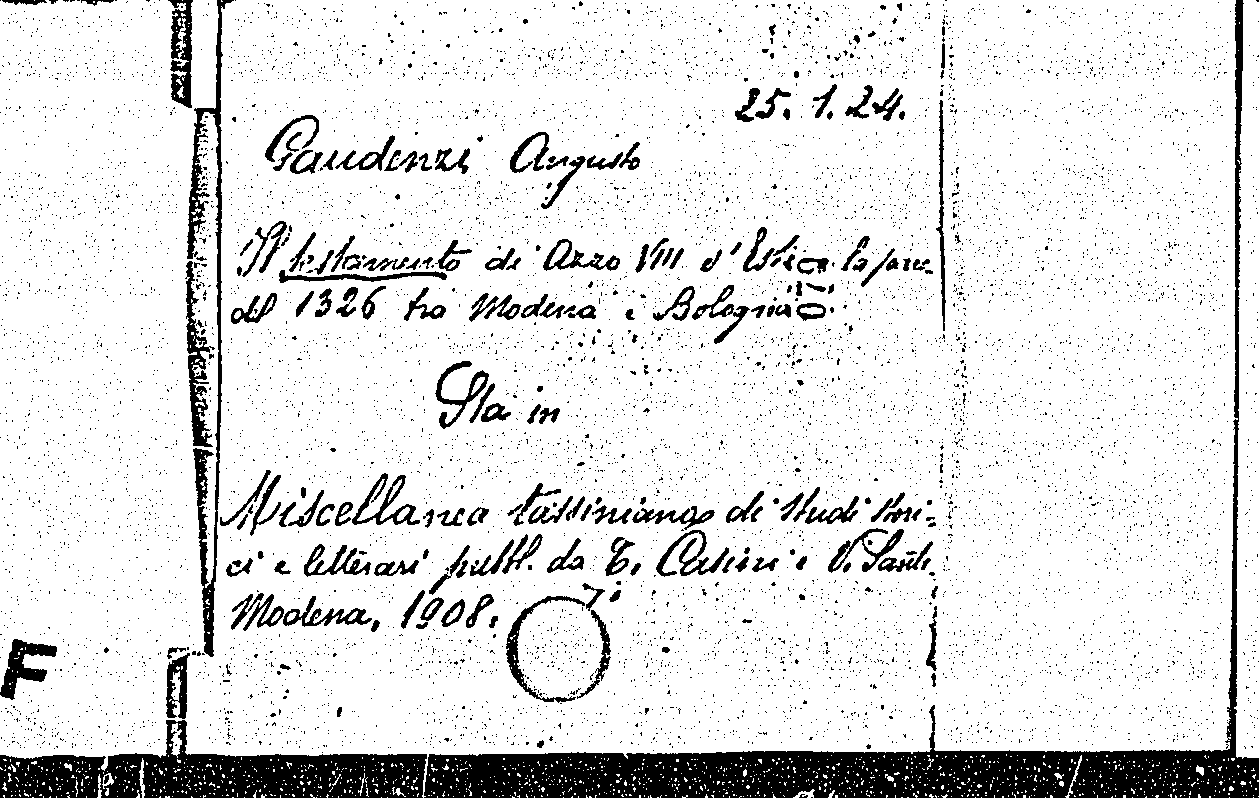 25. 1. 24.
Gaudenzi Augusto
Il testamento di Azzo VIII d'Este e la pace
del 1326 tra Modena e Bologna
Sta in
Miscellanea tassiniana di Studi stori-
ci e letterari pubbl. da T. Casini e V. Santi.
Modena, 1908.
F